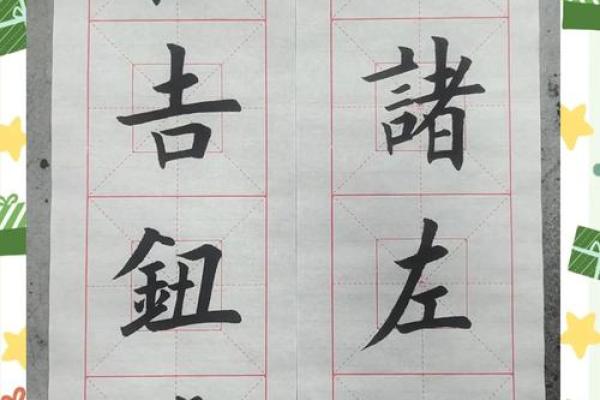 諸左
吉鈕